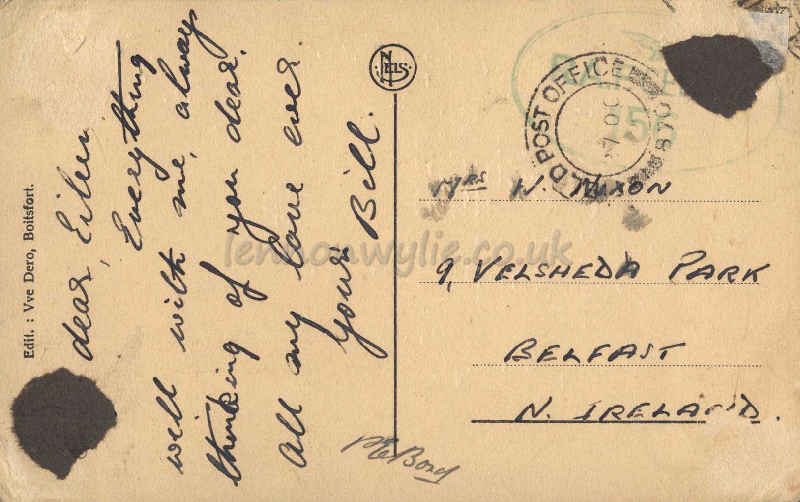 dear, Eileen,
Everything
will with me, always
thinking of you dear.
All my love ever.
Yours Bill.
Edit. : Vve Dero, Boitsfort.
NELS
FIELD POST OFFICE
870
156
Mrs W. Nixon
9, VELSHEDA PARK
BELFAST
N. IRELAND.
lennonwylie.co.uk